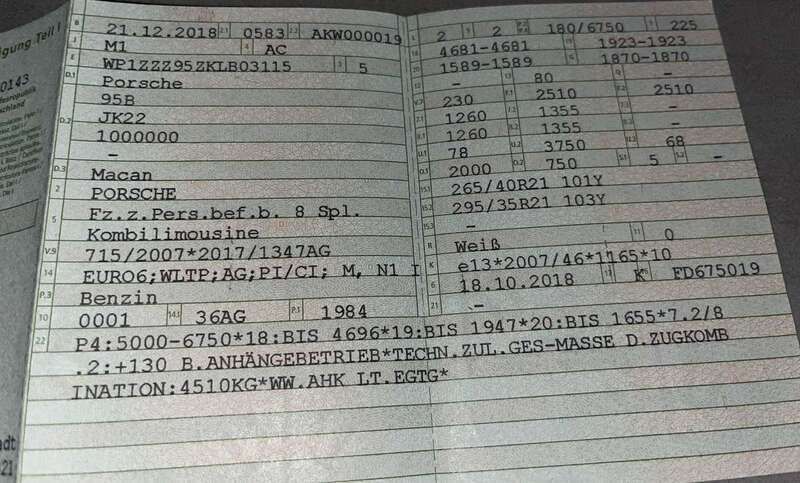 B 21.12.2018 2.1 0583 2.2 AKW000019
J M1 4 AC
E WP1ZZZ95ZKLB03115 3 5
D.1 Porsche
95B
D.2 JK22
1000000
–
D.3 Macan
2 PORSCHE
5 Fz.z.Pers.bef.b. 8 Spl.
Kombilimousine
V.9 715/2007*2017/1347AG
14 EURO6;WLTP;AG;PI/CI; M, N1 I
P.3 Benzin
10 0001 14.1 36AG P.1 1984
L 2 9 2 P.2/P.4 180/6750 T 225
18 4681-4681 19 1923-1923
20 1589-1589 G 1870-1870
12 – 13 80 Q –
V.7 230 F.1 2510 F.2 2510
7.1 1260 7.2 1355 7.3 –
8.1 1260 8.2 1355 8.3 –
U.1 78 U.2 3750 U.3 68
O.1 2000 O.2 750 S.1 5 S.2 –
15.1 265/40R21 101Y
15.2 295/35R21 103Y
15.3 –
R Weiß 11 0
K e13*2007/46*1165*10
6 18.10.2018 17 K 16 FD675019
21 –
22 P4:5000-6750*18:BIS 4696*19:BIS 1947*20:BIS 1655*7.2/8
.2:+130 B.ANHÄNGEBETRIEB*TECHN.ZUL.GES-MASSE D.ZUGKOMB
INATION:4510KG*WW.AHK LT.EGTG*